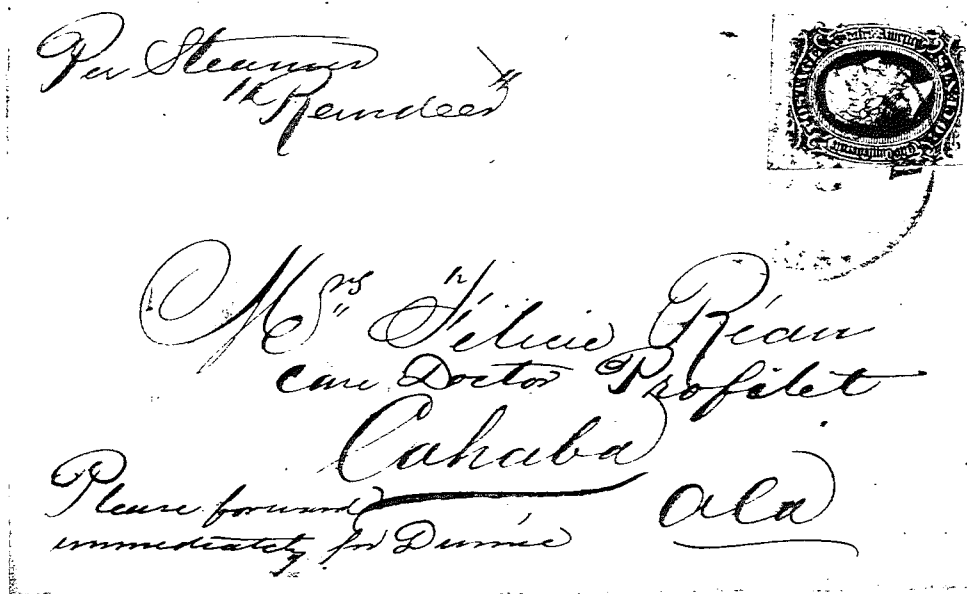 Per Steamer
"Reindeer"
Mrs Félicie Réau
care Doctor Profilet
Cahaba
Ala
Please forward
immediately for Dumée